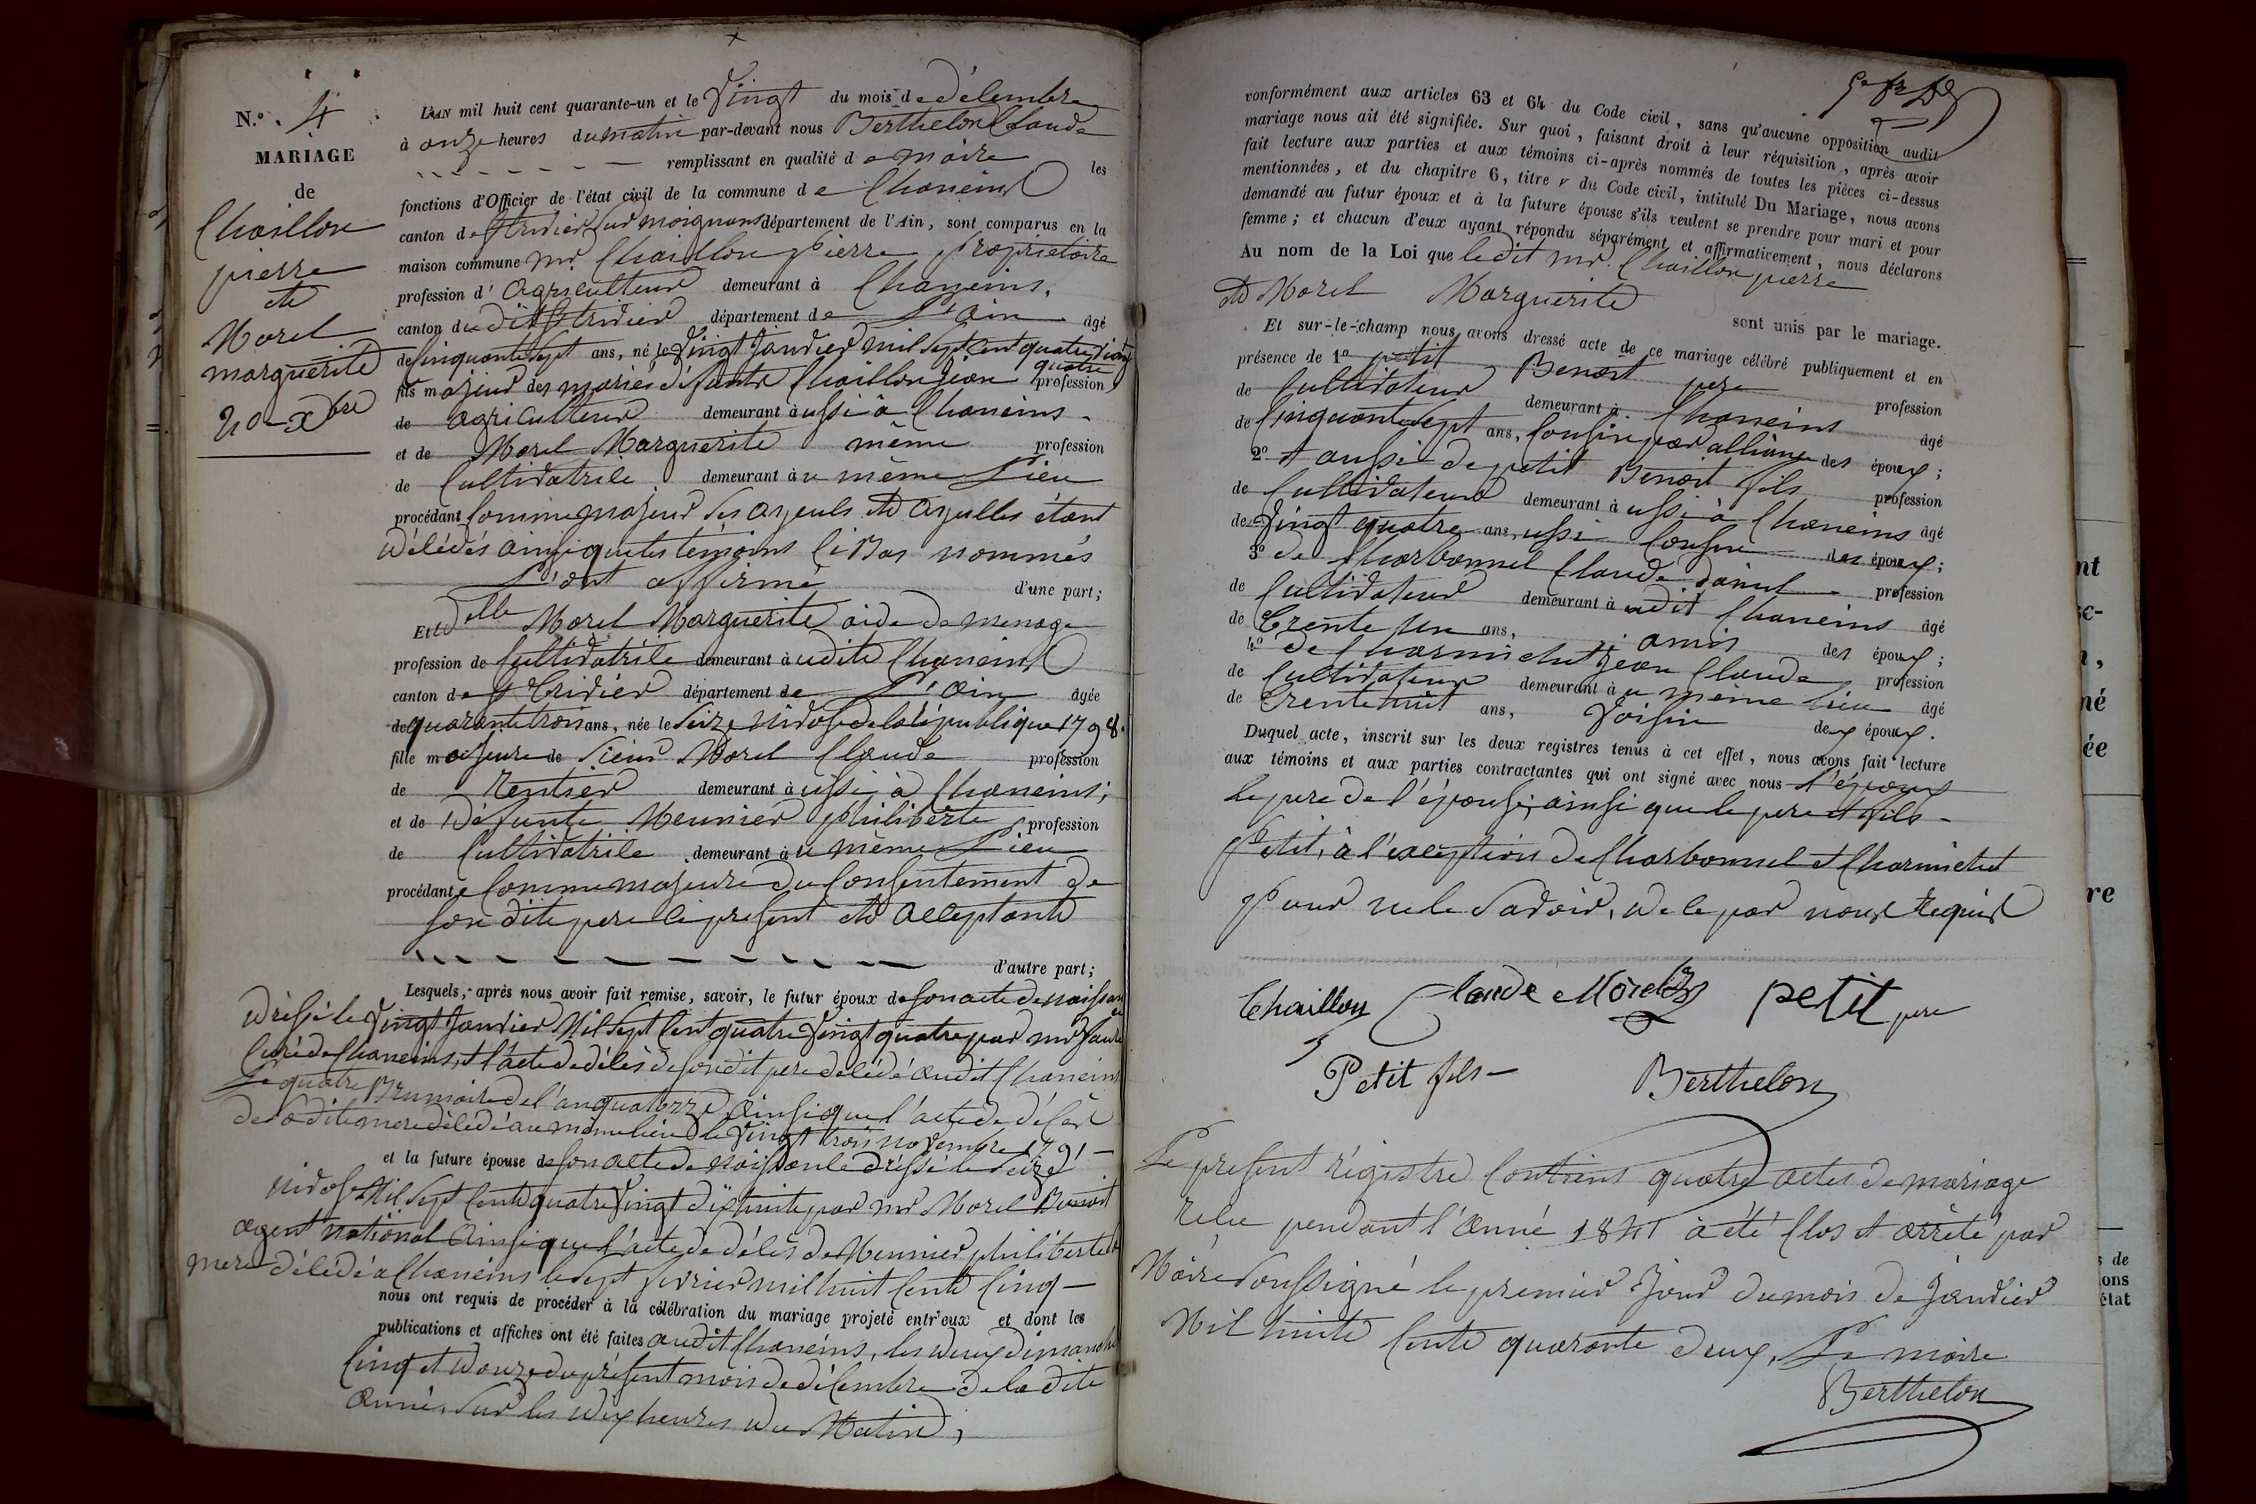 N.º 4
MARIAGE
de
Chaillon
pierre
et
Morel
marguerite
20 Xbre
L'AN mil huit cent quarante-un et le Vingt du mois de décembre
à onze heures du matin par-devant nous Berthelon Claude
remplissant en qualité de maire les
fonctions d'Officier de l'état civil de la commune de Chaneins
canton de St tridier sur moignans département de l'Ain, sont comparus en la
maison commune mr. Chaillon Pierre propriétaire
profession d' agriculteur demeurant à Chaneins.
canton du dit St tridier département de L'ain âgé
de cinquante sept ans, né le Vingt Janvier mil sept cent quatre vingt
quatre
fils majeur des mariés défunts Chaillon jean profession
de agriculteur demeurant aussi à Chaneins.
et de Morel Marguerite même profession
de Cultivatrice demeurant au même Lieu
procédant Comme majeur Ses ayeuls et ayeulles étant
décédés ainsi que les témoins ci Bas nommés
L'ont affirmé d'une part;
Et delle Morel Marguerite aide de menage
profession de Cultivatrice demeurant audite Chaneins
canton de St Trivier département de L'ain âgée
de quarante trois ans, née le Seize Nivose de la république 1798.
fille majeure de Sieur Morel Claude profession
de Rentier demeurant aussi à Chaneins;
et de Défunte Meunier philiberte profession
de Cultivatrice demeurant au même Lieu
procédante Comme majeure du Consentement de
son dite pere ci present et acceptant
d'autre part;
Lesquels, après nous avoir fait remise, savoir, le futur époux de son acte de naissance
dressé le Vingt Janvier Mil Sept Cent quatre Vingt quatre par mr
Curé de Chaneins, et l'acte de décès de son dit pere décédé audit Chaneins
Le quatre Brumaire de l'an quatorze, ainsi que l'acte de décès
de sa dite mere décédé au même lieu le Vingt trois novembre 1791
et la future épouse de son acte de naissance dressé le Seize
nivose Mil Sept Cent quatre Vingt dix huite par mr Morel Benoit
agent national ainsi que l'acte de décès de Meunier philiberte sa
mere décédé a Chaneins le Sept fevrier mil huit Cent Cinq
nous ont requis de procéder à la célébration du mariage projeté entr'eux et dont les
publications et affiches ont été faites audit Chaneins, les deux dimanche
Cinq et douze du présent mois de décembre de la dite
année, Sur les dix heures du Matin,
conformément aux articles 63 et 64 du Code civil, sans qu'aucune opposition audit
mariage nous ait été signifiée. Sur quoi, faisant droit à leur réquisition, après avoir
fait lecture aux parties et aux témoins ci-après nommés de toutes les pièces ci-dessus
mentionnées, et du chapitre 6, titre v du Code civil, intitulé Du Mariage, nous avons
demandé au futur époux et à la future épouse s'ils veulent se prendre pour mari et pour
femme; et chacun d'eux ayant répondu séparément et affirmativement, nous déclarons
Au nom de la Loi que ledit mr. Chaillon pierre
et Morel Marguerite
sont unis par le mariage.
Et sur-le-champ nous avons dressé acte de ce mariage célébré publiquement et en
présence de 1º petit Benoit pere profession
de Cultivateur demeurant à Chaneins âgé
de Cinquante sept ans, Cousin par alliance des époux;
2º et aussi de petit Benoit fils profession
de Cultivateur demeurant aussi à Chaneins âgé
de Vingt quatre ans, aussi Cousin des époux;
3º de Charbonnel Claude daniel profession
de Cultivateur demeurant audit Chaneins âgé
de Trente un ans, amis des époux;
4º de Charmichet jean Claude profession
de Cultivateur demeurant au même Lieu âgé
de Trente huit ans, Voisin des époux.
Duquel acte, inscrit sur les deux registres tenus à cet effet, nous avons fait lecture
aux témoins et aux parties contractantes qui ont signé avec nous l'époux
Le pere de l'épouse, ainsi que le pere et fils
Petit, à l'exception de Charbonnel et Charmichet
Pour ne le Savoir, de ce par nous requis
Chaillon Claude Morel petit pere
Petit fils Berthelon
Le present régistre Contient quatre actes de mariage
recu pendant l'anné 1841 a été Clos et arrêté par
Maire soussigné le premier Jour du mois de Janvier
Mil huite Cente quarante deux, Le maire
Berthelon